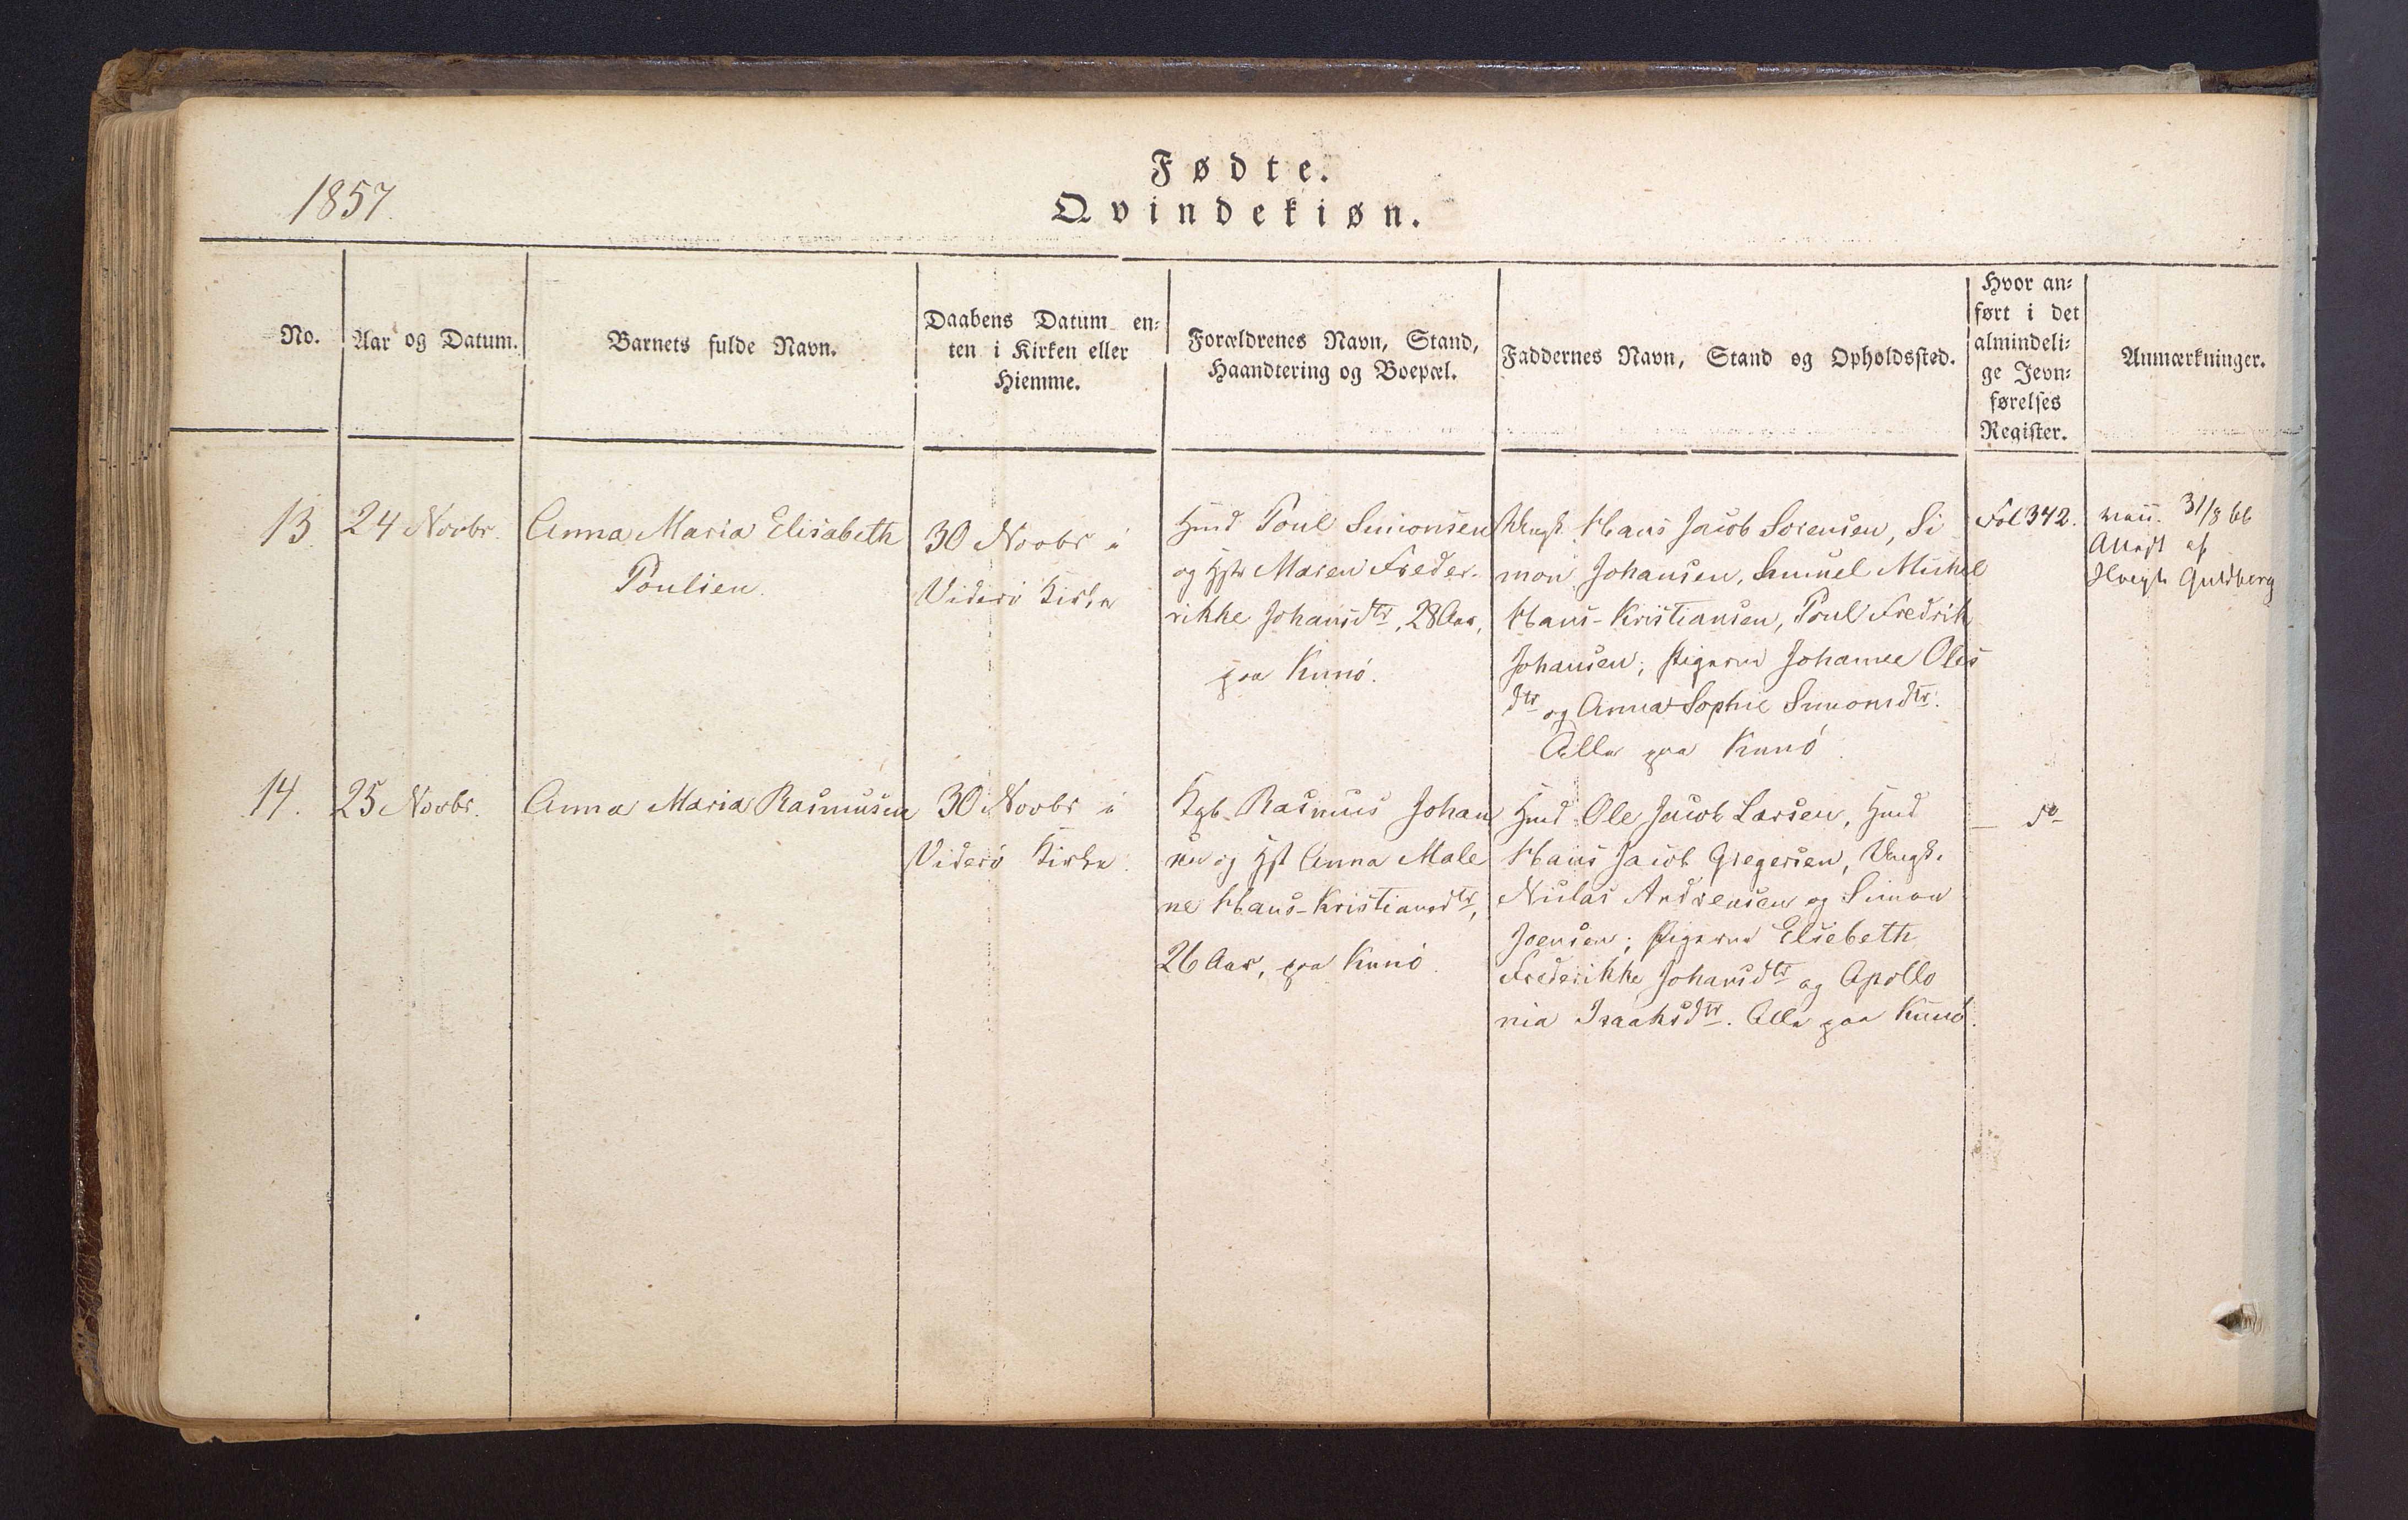 1857.
Fødte.
Qvindekiøn.
No.
Aar og Datum.
Barnets fulde Navn.
Daabens Datum en-
ten i Kirken eller
Hiemme.
Forældrenes Navn, Stand,
Haandtering og Boepæl.
Faddernes Navn, Stand og Opholdssted.
Hvor an-
ført i det
almindeli-
ge Jevn-
førelses
Register.
Anmærkninger.
13.
24 Novbr.
Anna Maria Elisabeth
Poulsen.
30 Novbr i
Viderö Kirke
Hmd Poul Simonsen
og Hstr Maren Freder-
rikke Johansdtr, 28 Aar,
paa Kunö.
Ungk. Hans Jacob Sorensen, Si
mon Johansen, Samuel Michel
Hans-Kristiansen, Poul Fredrik
Johansen; Pigerne Johanne Oles
dtr og Anna Sophie Simonsdtr.
Alle paa Kunö.
Fol 342.
vacc. 31/8 66
Attest af
Guldberg
14.
25 Novbr.
Anna Maria Rasmusen
30 Novbr i
Viderö Kirke.
Rasmus Johan
sen og Hst Anna Male
ne Hans-Kristiansdtr,
26 Aar, paa Kunö.
Hmd Ole Jacob Larsen, Hmd
Hans Jacob Gregersen, Ungk.
Niclas Andreasen og Simon
Joensen; Pigerne Elsebeth
Frederikke Johansdtr og Apollo
nia Isaaksdtr. Alle paa Kunö.
— do